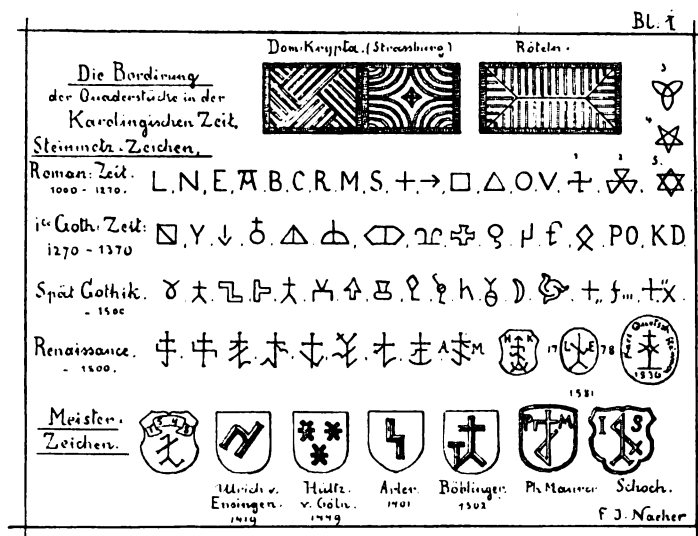 Bl. I
Dom. Krypta. (Strassburg)
Röteln.
Die Bordirung
der Quaderstücke in der
Karolingischen Zeit.
3
4
Steinmetz-Zeichen.
Roman: Zeit.
1000 - 1270.
L, N, E, A, B, C, R, M, S,
O, V,
1
2
5.
Goth. Zeit:
1270 - 1370
PO, KD
Spät Gothik.
- 1500
Renaissance.
- 1800.
A
M
H K
17 L E 78
Karl
1836
1581
Meister-
Zeichen.
1548
Ph M
I S
Ulrich v.
Ensingen.
1419
Hültz.
v. Cöln.
1449
Arler.
1401
Böblinger.
1502
Ph Maurer
Schoch.
F J. Naeher